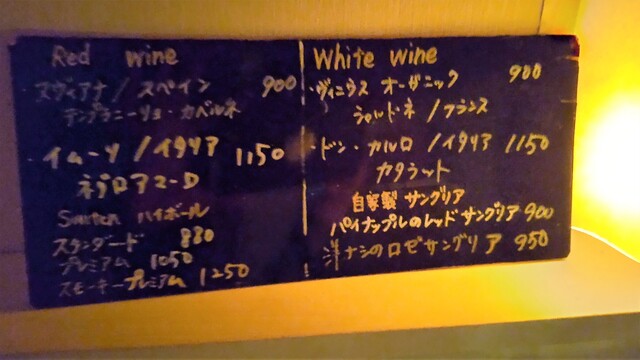 Red wine
・スヴィアナ/スペイン 900
テンプラニーリョ・カベルネ
・イムーソ/イタリア 1150
ネグロアマーロ
ハイボール
スタンダード 880
プレミアム 1050
スモーキープレミアム 1250
White wine
・ヴィニウス オーガニック 900
シャルドネ/フランス
・ドン・カルロ/イタリア 1150
カタラット
自家製 サングリア
パイナップルのレッドサングリア 900
洋ナシのロゼサングリア 950